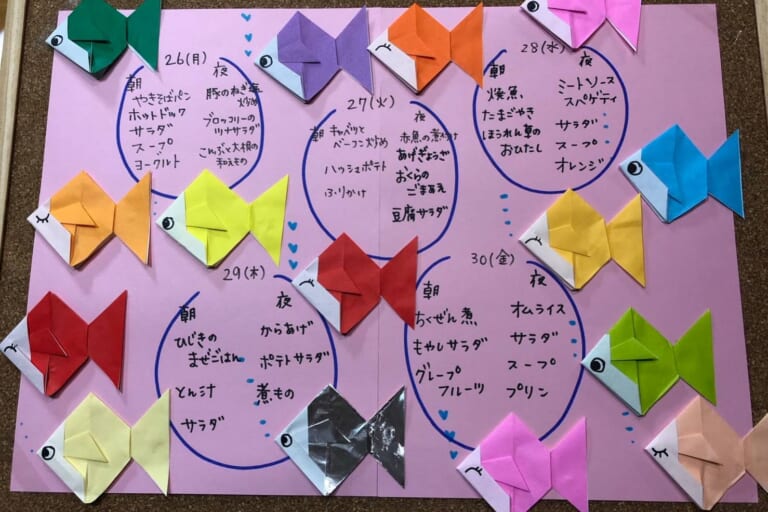 26(月)
朝
やきそばパン
ホットドック
サラダ
スープ
ヨーグルト
夜
豚のねぎ塩
炒め
ブロッコリーの
ツナサラダ
こんぶと大根の
和えもの
27(火)
朝
キャベツと
ベーコン炒め
ハッシュポテト
ふりかけ
夜
赤魚の煮つけ
あげぎょうざ
おくらの
ごまあえ
豆腐サラダ
28(水)
朝
焼魚
たまごやき
ほうれん草の
おひたし
夜
ミートソース
スパゲティ
サラダ
スープ
オレンジ
29(木)
朝
ひじきの
まぜごはん
とん汁
サラダ
夜
からあげ
ポテトサラダ
煮もの
30(金)
朝
ちくぜん煮
もやしサラダ
グレープ
フルーツ
夜
オムライス
サラダ
スープ
プリン